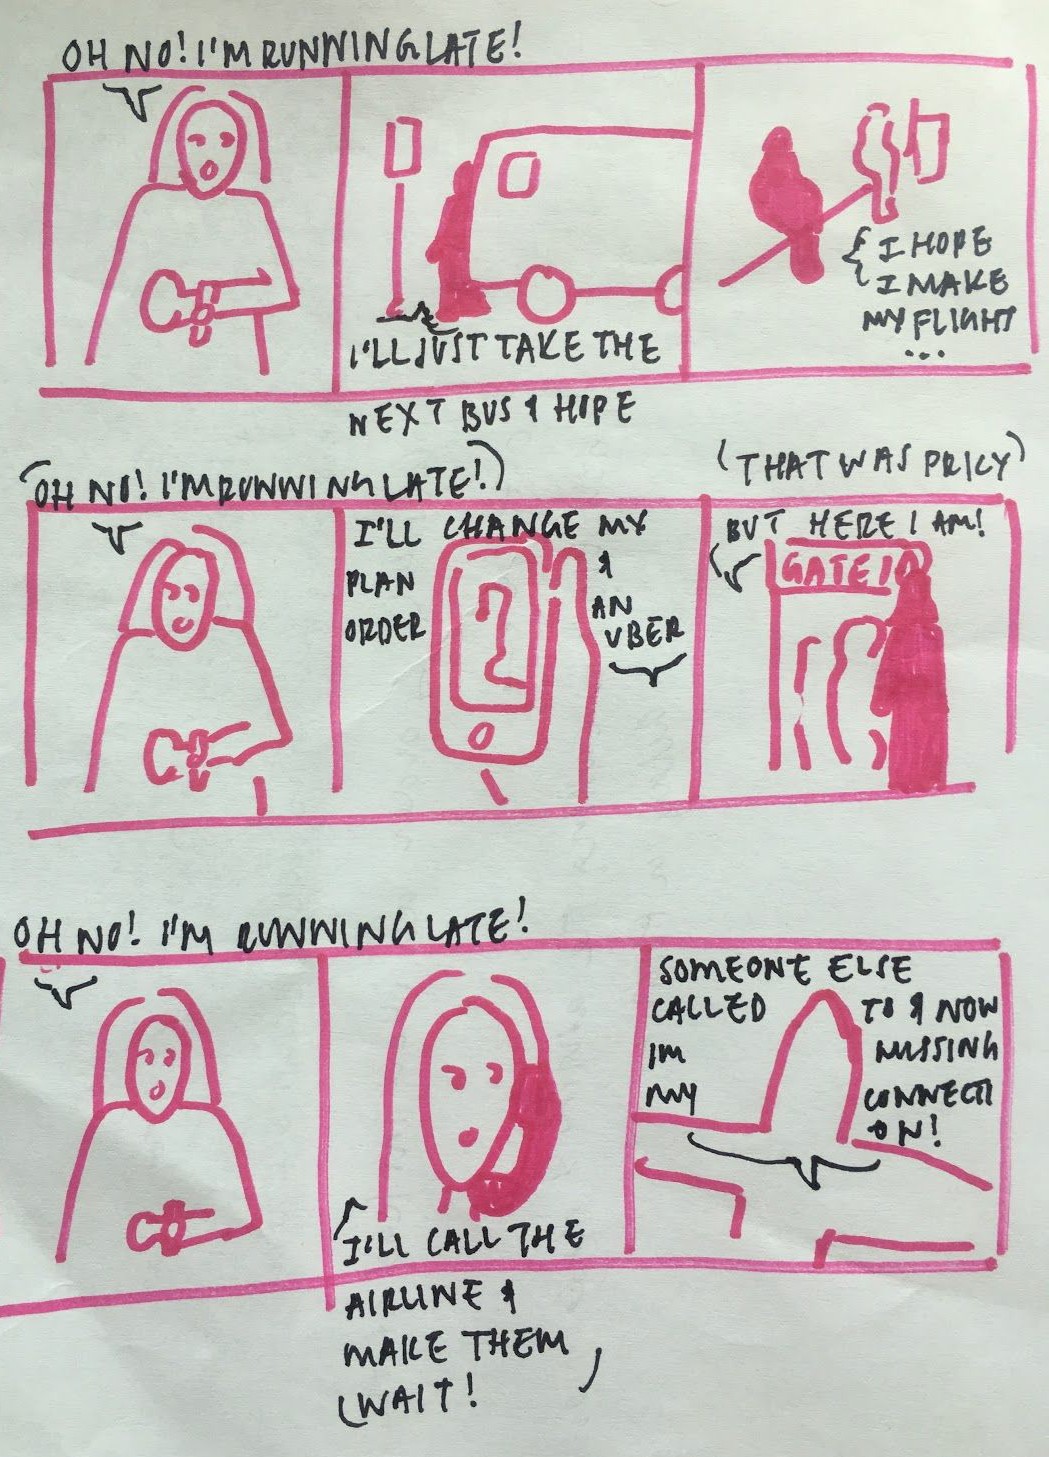 OH NO! I'M RUNNING LATE!
I'LL JUST TAKE THE
NEXT BUS & HOPE
I HOPE
I MAKE
MY FLIGHT
...
(OH NO! I'M RUNNING LATE!)
I'LL CHANGE MY
PLAN &
ORDER AN
UBER
(THAT WAS PRICY)
BUT HERE I AM!
GATE 10
OH NO! I'M RUNNING LATE!
I'LL CALL THE
AIRLINE &
MAKE THEM
WAIT!
SOMEONE ELSE
CALLED TO & NOW
IM MISSING
MY CONNECTI
ON!